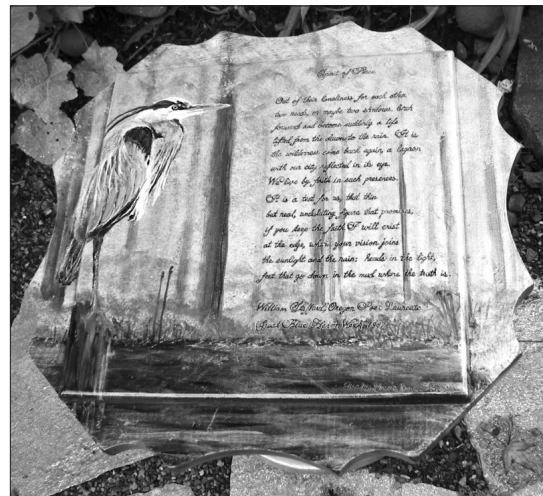 Spirit of Place
Out of their loneliness for each other
two reeds, or maybe two shadows, lurch
forward and become suddenly a life
lifted from the dawn or the rain. It is
the wilderness come back again, a lagoon
with our city reflected in its eye.
We live by faith in such presences.
It is a test for us, that thin
but real, undulating figure that promises,
if you keep the faith I will exist
at the edge, where your vision joins
the sunlight and the rain: heads in the light,
feet that go down in the mud where the truth is.
William Stafford, Oregon Poet Laureate
Great Blue Heron Week,